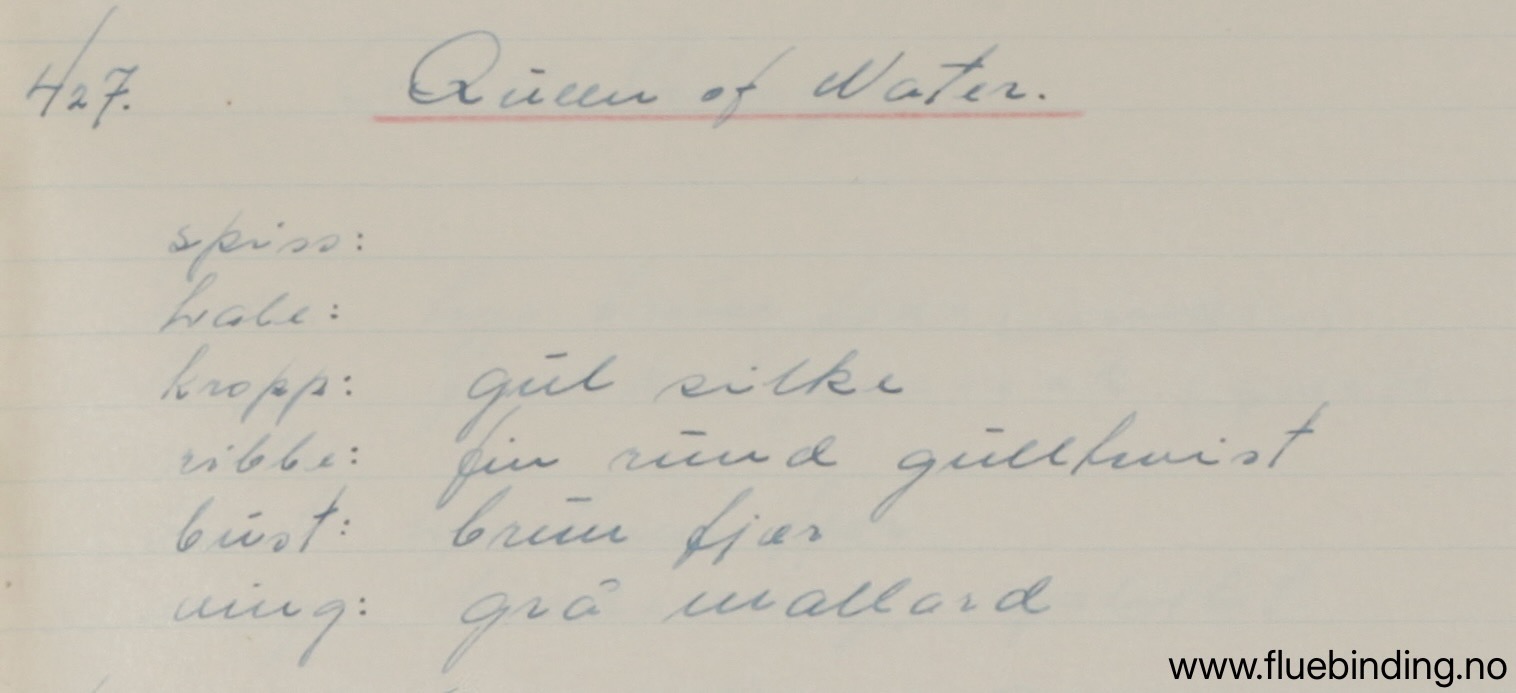 427. Queen of Water.
spiss:
hale:
kropp: gul silke
ribbe: fin rund gulltwist
bust: brun fjær
ving: grå mallard
www.fluebinding.no